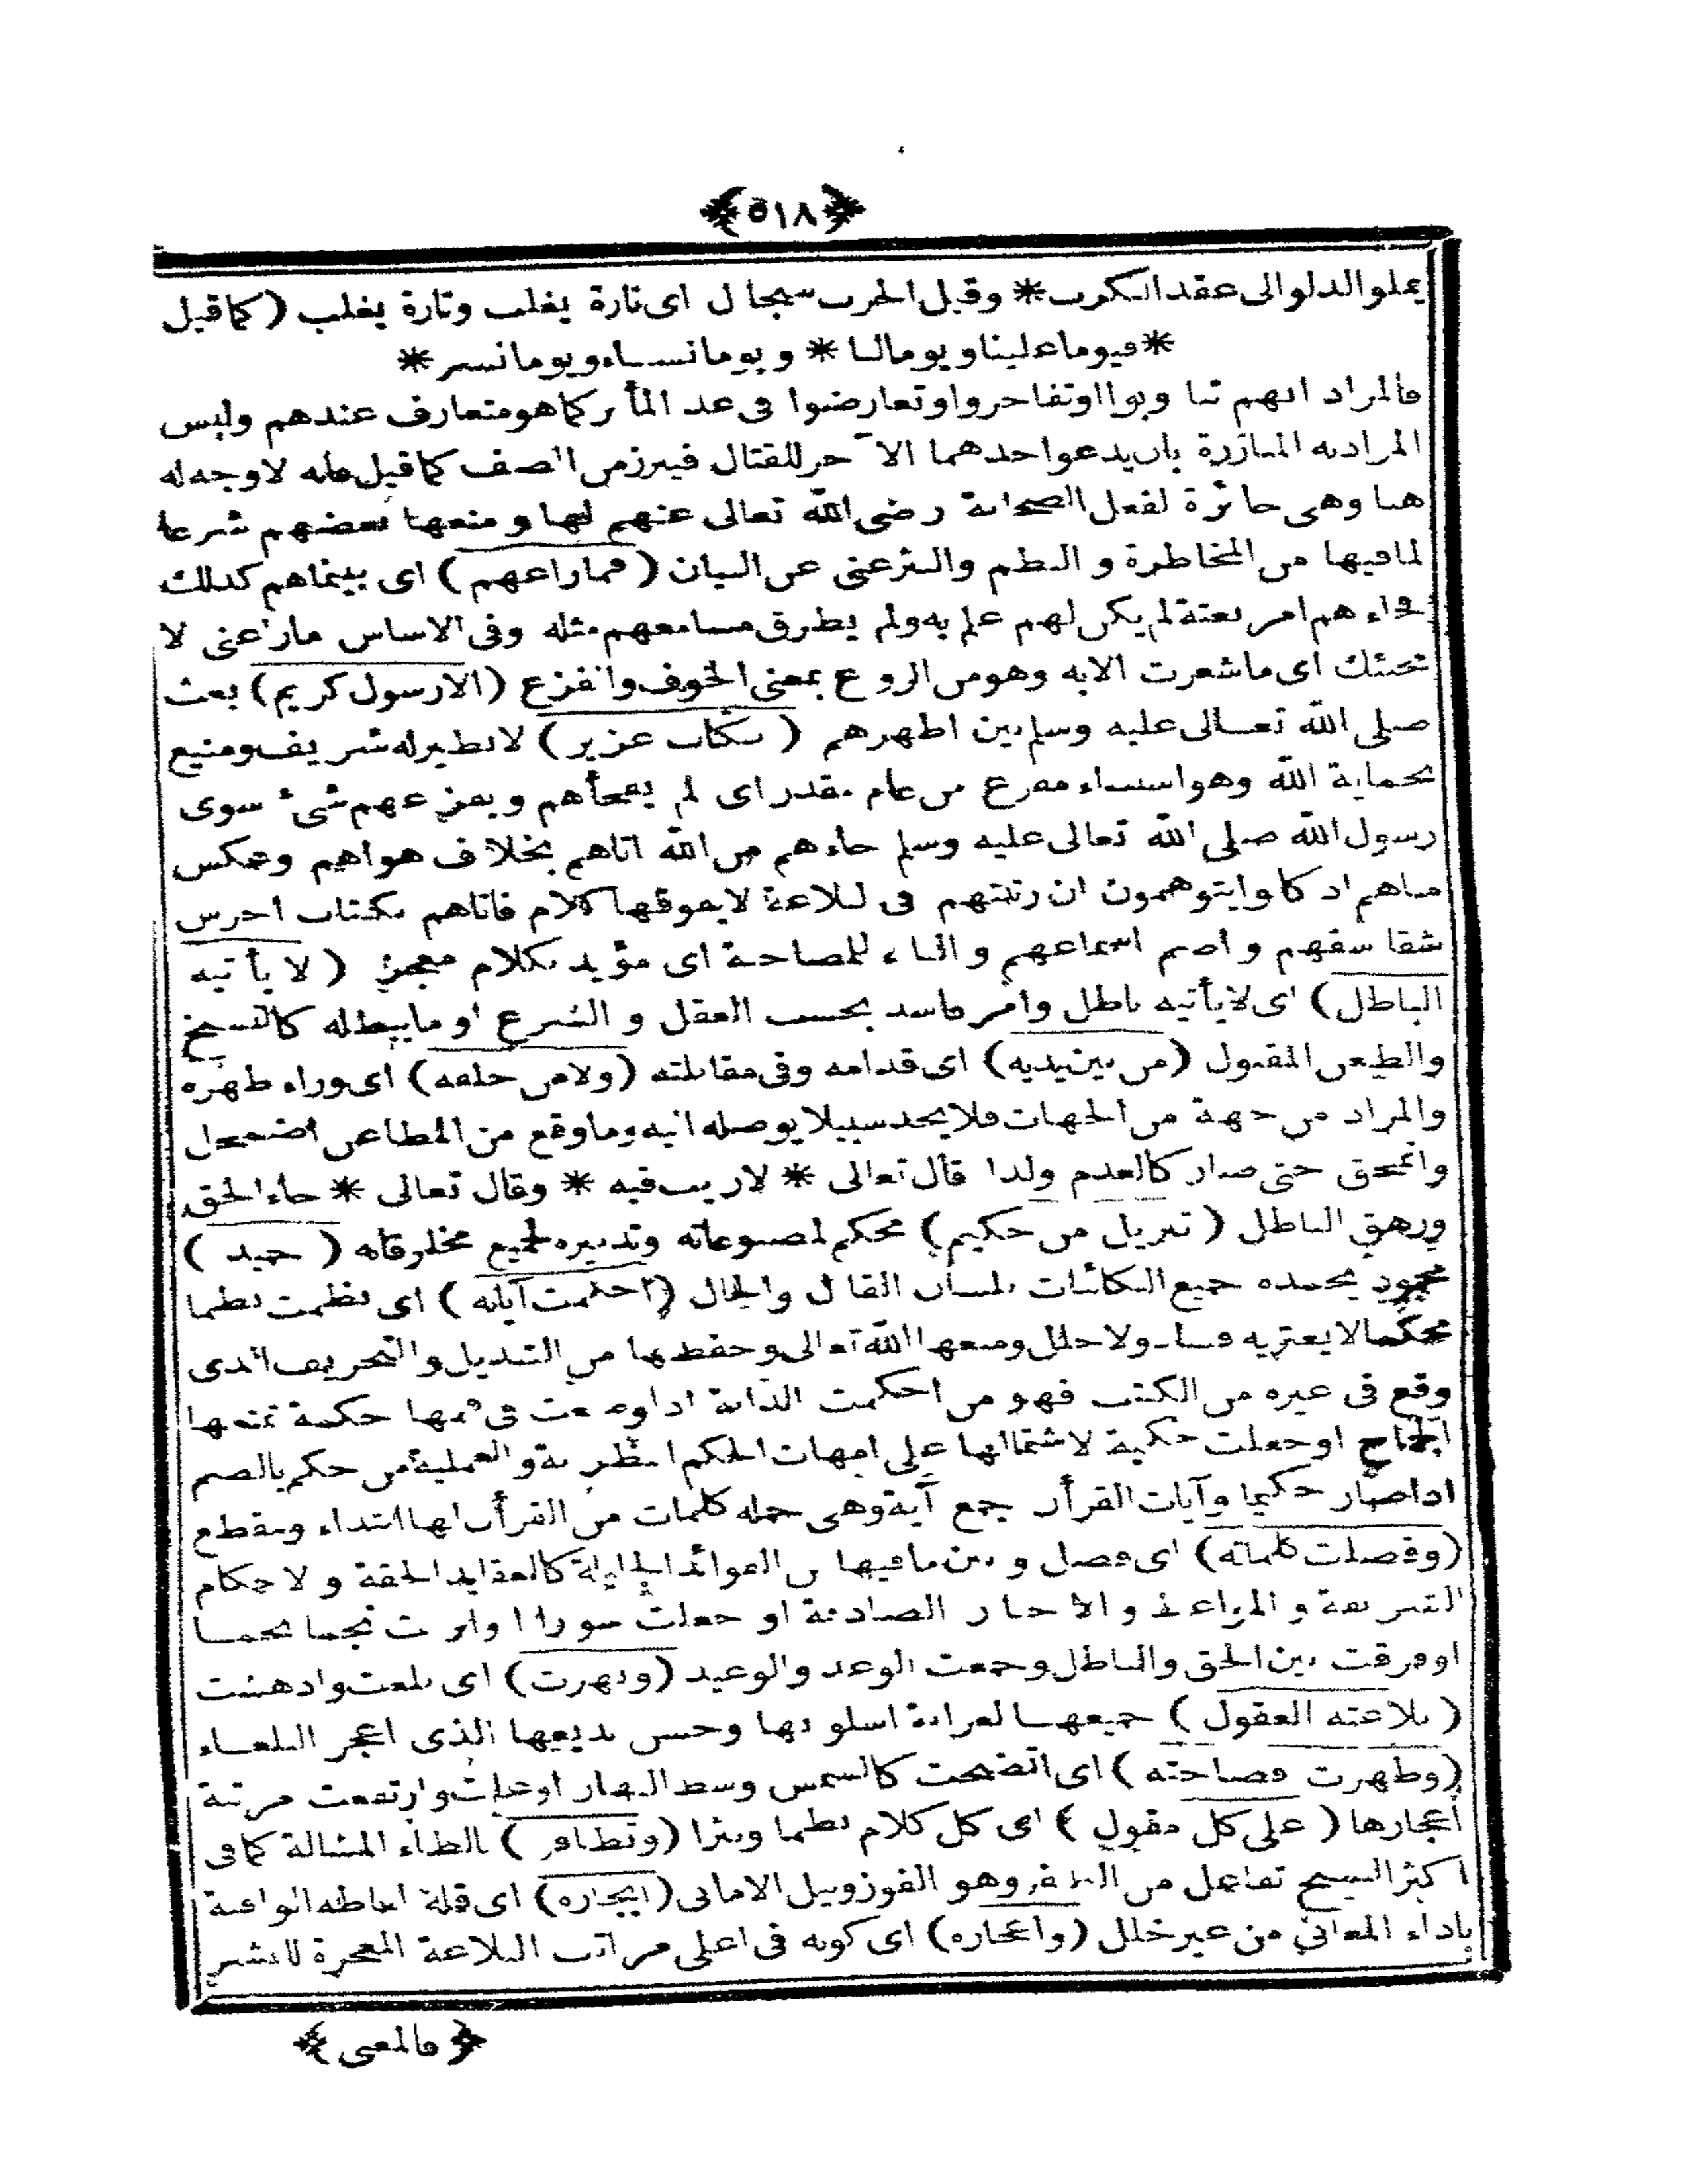 ﴿٥١٨﴾
يملو الدلو الى عقد الكرب * وقيل الحرب سجال اى تارة يغلب وتارة يغلب ( كما قيل
* فيوما علينا ويوما لنا * ويوما نساء ويوما نسر *
فالمراد انهم تنا وبوا او تفاخروا وتعارضوا فى عد المأ ثر كما هو متعارف عندهم وليس
المراد به المبارزة بان يدعو احدهما الآ خر للقتال فيبرز من الصف كما قيل فانه لا وجه له
هنا وهى جائزة لفعل الصحابة رضى الله تعالى عنهم لها و منعها بعضهم شرعا
لما فيها من المخاطرة و النظم والنثر غنى عن البيان ( فما راعهم ) اى بينما هم كذلك
جاءهم امر بغتة لم يكن لهم علم به ولم يطرق مسامعهم مثله وفى الاساس ما راعنى الا
مجيئك اى ما شعرت الابه وهو من الروع بمعنى الخوف والفزع ( الا رسول كريم ) بعث
صلى الله تعالى عليه وسلم بين اظهرهم ( بكتاب عزيز ) لا نظير له شريف ومنيع
بحماية الله وهو استثناء مفرغ من عام مقدر اى لم يفجأهم ويفزعهم شىء سوى
رسول الله صلى الله تعالى عليه وسلم جاءهم من الله اتاهم بخلاف هواهم وعكس
مناهم اذ كانوا يتوهمون ان رتبتهم فى البلاغة لا يفوقها كلام فاتاهم بكتاب اخرس
شقا سقهم و اصم اسماعهم و الباء للمصاحبة اى مؤيد بكلام معجز ( لا يأتيه
الباطل ) اى لا يأتيه باطل وامر فاسد بحسب العقل و الشرع او ما يبطله كالنسخ
والطعن المقبول ( من بين يديه ) اى قدامه وفى مقابلته ( ولا من خلفه ) اى وراء ظهره
والمراد من جهة من الجهات فلا يجد سبيلا يوصله اليه وما وقع من المطاعن اضمحل
وانمحق حتى صار كالعدم ولذا قال تعالى * لا ريب فيه * وقال تعالى * جاء الحق
وزهق الباطل ( تنزيل من حكيم ) محكم لمصنوعاته وتدبيره لجميع مخلوقاته ( حميد )
محمود يحمده جميع الكائنات بلسان القال والحال ( احكمت آياته ) اى نظمت نظما
محكما لا يعتريه فساد ولا خلل ومنعها الله تعالى وحفظها من التبديل والتحريف الذى
وقع فى غيره من الكتب فهو من احكمت الدابة اذا وضعت فى فمها حكمة تمنعها
الجماح او جعلت حكمية لاشتمالها على امهات الحكم النظرية والعملية من حكم بالضم
اذا صار حكيما وآيات القرأن جمع آية وهى جملة كلمات من القرأن لها ابتداء ومقطع
( وفصلت كلماته ) اى فصل و بين ما فيها من الفوائد الجليلة كالعقايد الحقة و لا حكام
الشريعة و المواعظ و الاخبار الصادقة او جعلت سورا او انزلت نجما نجما
او فرقت بين الحق والباطل وجمعت الوعد والوعيد ( وبهرت ) اى بلغت وادهشت
( بلاغته العقول ) جميعها لغرابة اسلوبها وحسن بديعها الذى اعجز البلغاء
( وظهرت فصاحته ) اى اتضحت كالشمس وسط النهار او علت وارتفعت مرتبة
اعجازها ( على كل مقول ) اى كل كلام نظما ونثرا ( وتظافر ) بالظاء المشالة كما فى
اكثر النسخ تفاعل من الظفر وهو الفوز ونيل الامانى ( ايجازه ) اى قلة الفاظه الوافية
باداء المعانى من غير خلل ( واعجازه ) اى كونه فى اعلى مراتب البلاغة المعجزة للبشر
﴿ فالمعنى ﴾